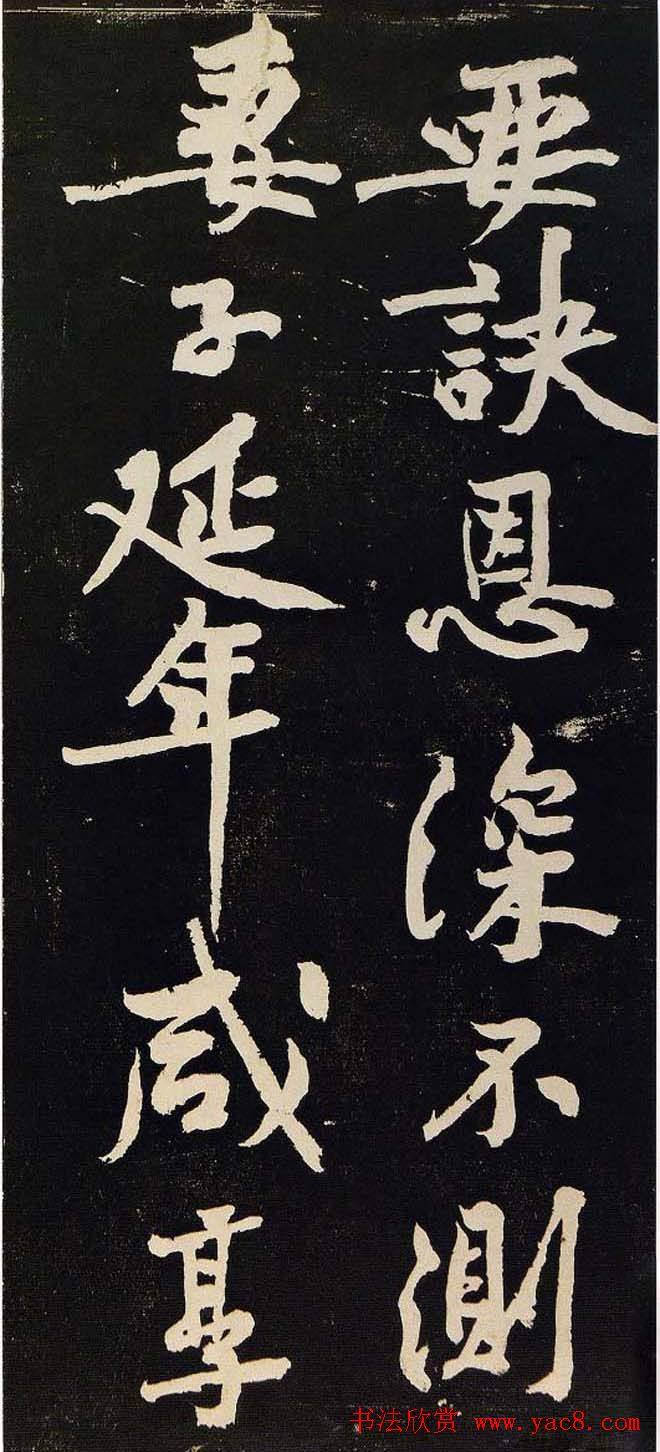 要訣恩深不測
妻子延年咸享
书法欣赏 www.yac8.com